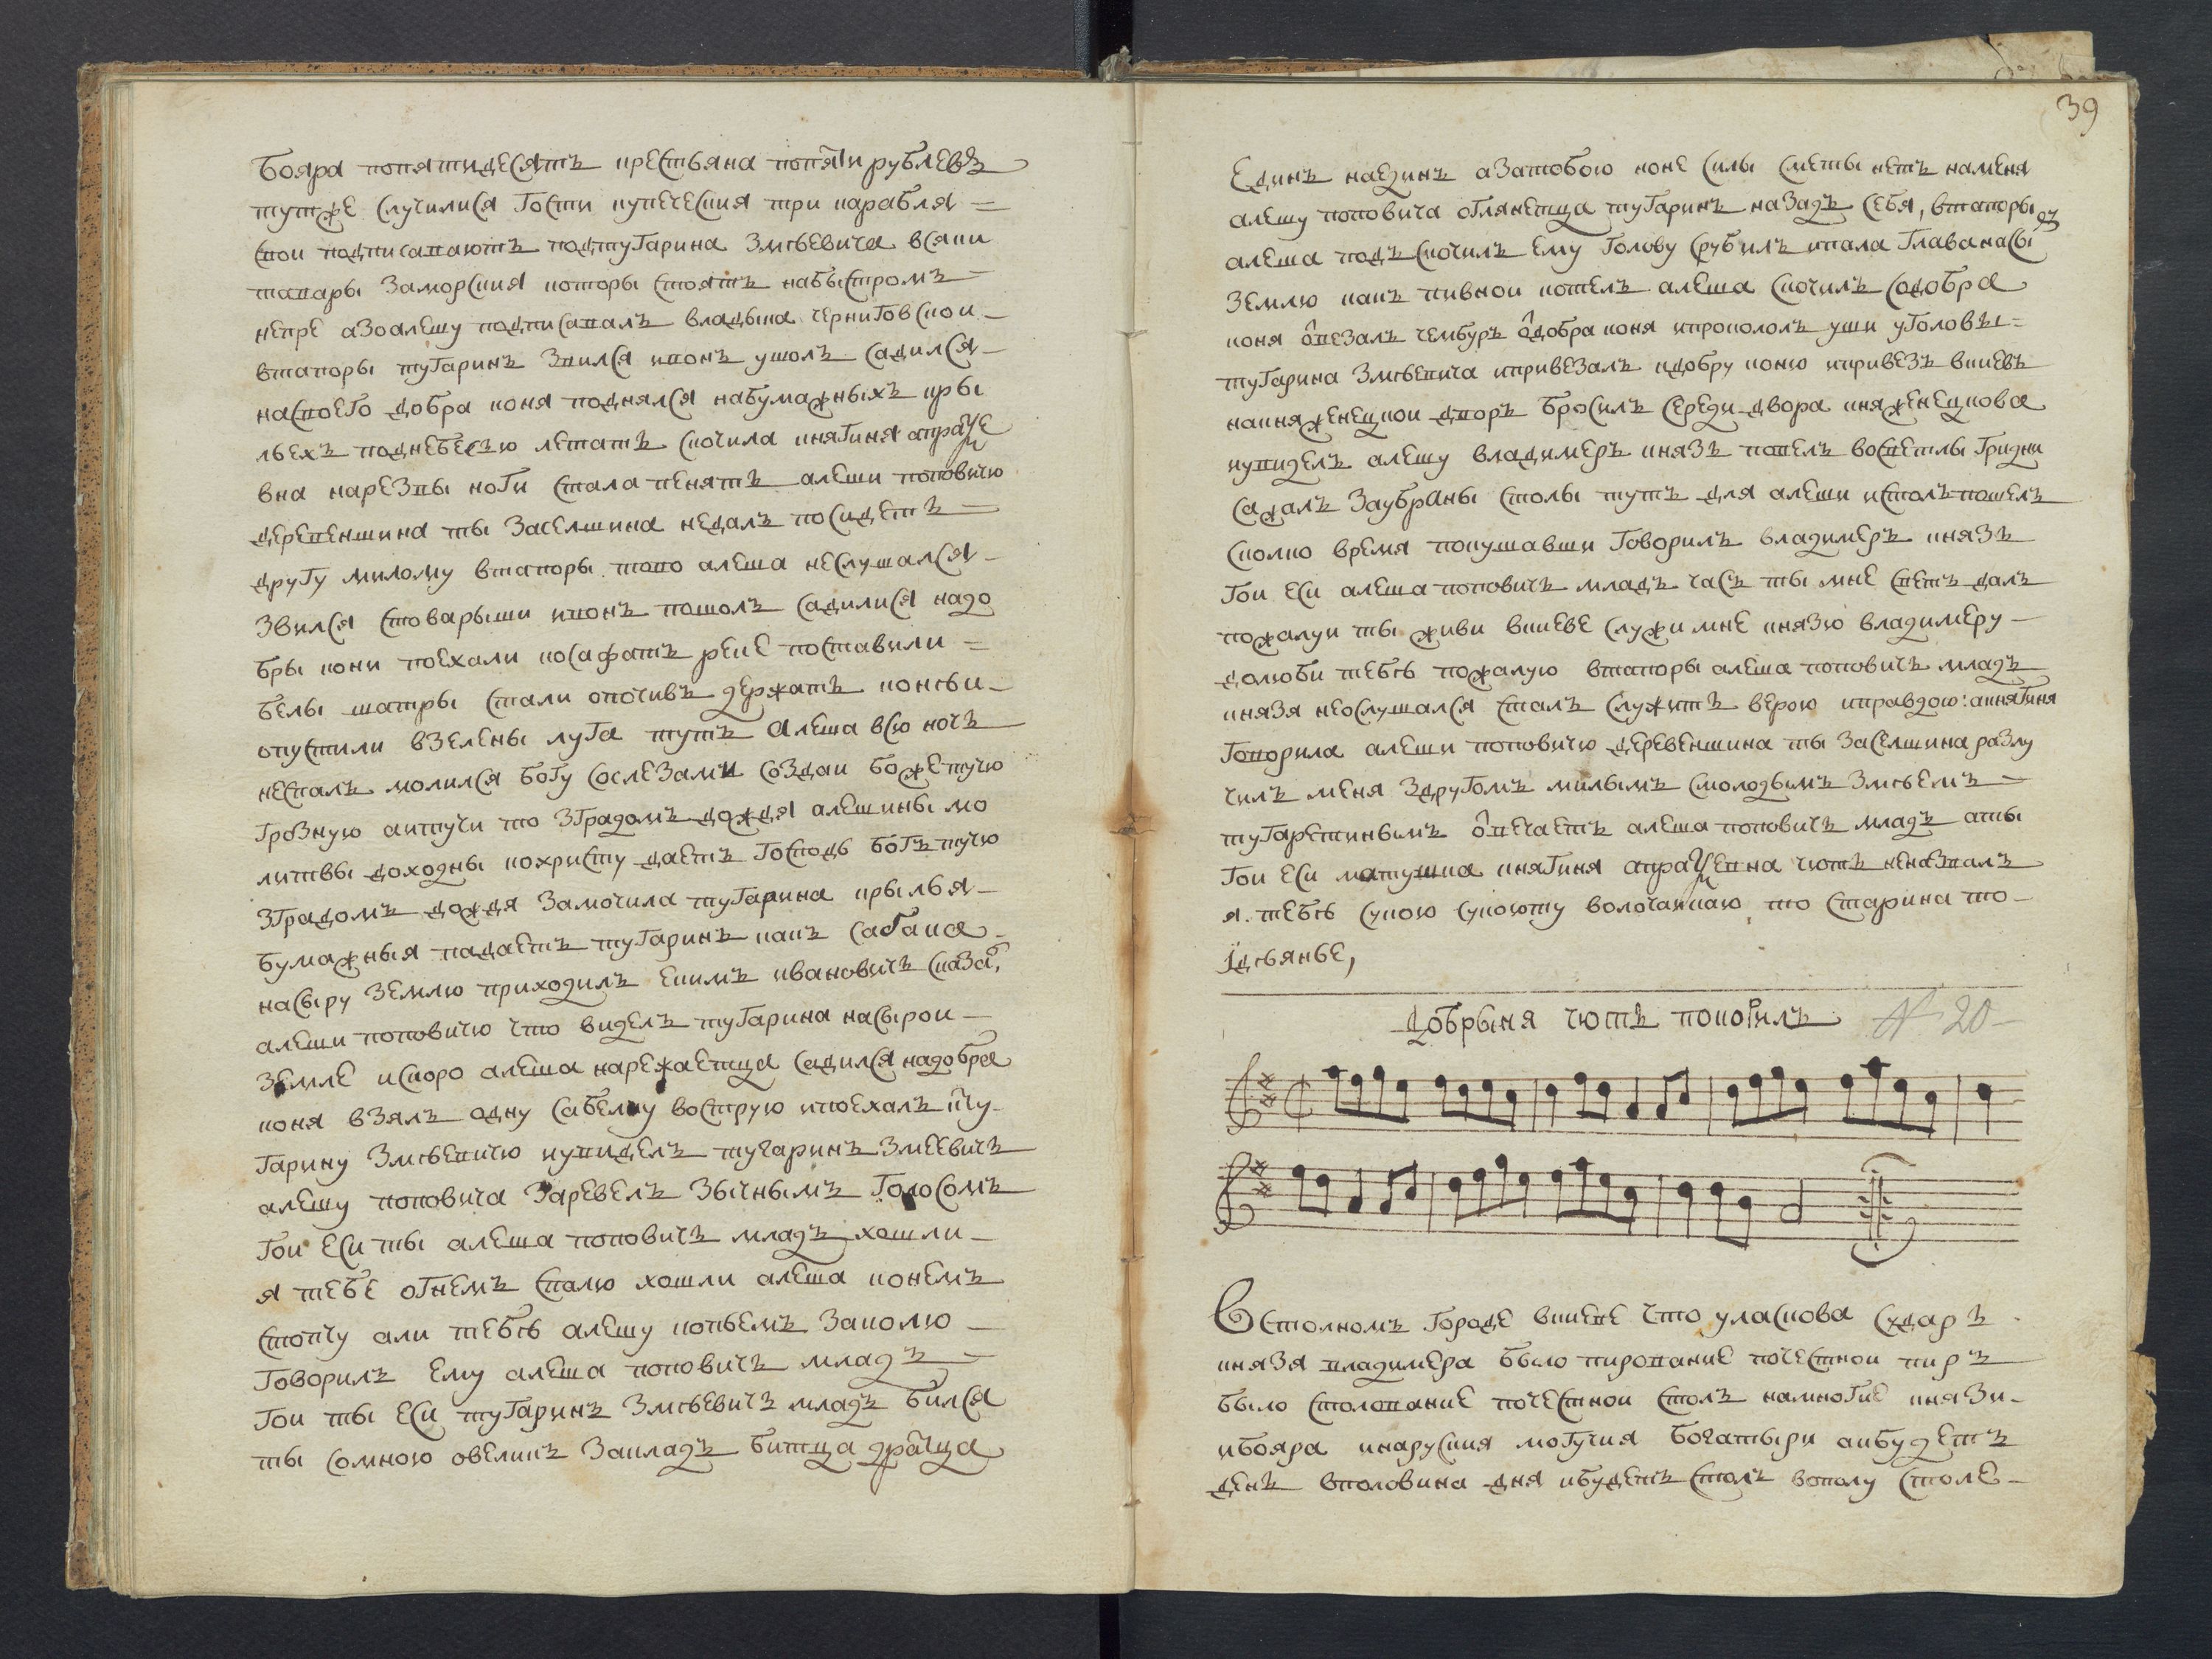 бояра попятидесятъ крестьяна попяти рублевъ
тутже случилися гости купеческия три карабля
свои подписавають подтугарина змѣевича всяки
тавары заморския которы стоятъ набыстромъ
непре азоалешу подписавалъ владыка черниговскои
втапоры тугаринъ звился ивонъ ушолъ садился
насвоего добра коня поднялся набумажныхъ кры
льехъ поднебесью летать скочила княгиня апраксе
вна нарезвы ноги стала пенять алеши поповичю
деревенщина ты заселшина недалъ посидеть
другу милому втапоры тово алеша неслушался
звился стоварыши ивонъ пошолъ садилися надо
бры кони поехали косафатъ реке поставили
белы шатры стали опочивъ держать коньѣи
опустили взелены луга тутъ алеша всю ночь
неспалъ молился богу сослезами создаи боже тучю
грозную аитучи то зградомъ дождя алешины мо
литвы доходны кохристу даетъ господь богъ тучю
зградомъ дождя замочила тугарина крылья
бумажныя падаетъ тугаринъ какъ сабака
насыру землю приходилъ екимъ ивановичъ сказа,
алеши поповичю что виделъ тугарина насырои
земле искоро алеша нарежаетца садился надобра
коня взялъ одну сабелку вострую ипоехалъ кту
гарину змѣевичю иувиделъ тугаринъ змеевичь
алешу поповича заревелъ зычнымъ голосомъ
гои еси ты алеша поповичъ младъ хошли
я тебе огнемъ спалю хошли алеша конемъ
стопчу али тебѣ алешу копьемъ заколю
говорилъ ему алеша поповичъ младъ
гои ты еси тугаринъ змѣевичъ младъ бился
ты сомною овеликъ закладъ битца дратца
39
единъ наединъ азатобою ноне силы сметы нетъ наменя
алешу поповича оглянетца тугаринъ назадъ себя, втапоры
алеша подъскочилъ ему голову срубилъ ипала глава насы
землю какъ пивнои котелъ алеша скочилъ содобра
коня отвезалъ чембуръ отдобра коня ипрокололъ уши уголовы
тугарина змѣевича ипривезалъ кдобру коню ипривезъ вкиевъ
накняженецкои дворъ бросилъ середи двора княженецкова
иувиделъ алешу владимеръ князь повелъ восветлы гридни
сажалъ заубраны столы тутъ для алеши истолъ пошелъ
сколко время покушавши говорилъ владимеръ князь
гои еси алеша поповичъ младъ часъ ты мне светъ далъ
пожалуи ты живи вкиеве служи мне князю владимеру
долюби тебѣ пожалую втапоры алеша поповичъ младъ
князя неослушался сталъ служить верою иправдою: акнягиня
говорила алеши поповичю деревенщина ты заселшина разлу
чилъ меня здругомъ милымъ смолодымъ змѣемъ
тугаретинымъ отвечаетъ алеша поповичъ младъ аты
гои еси матушка княгиня апраксевна чють неназвалъ
я тебѣ сукою сукоюту волочаикаю то старина то
идѣянье,
добрыня чють покорилъ № 20
Встолномъ городе вкиеве что уласкова сударь
князя владимера было пирование почестнои пиръ
было столование почестнои столъ намногие князи
ибояра инаруския могучия богатыри аибудетъ
день вполовина дня ибудетъ столъ вополу столе